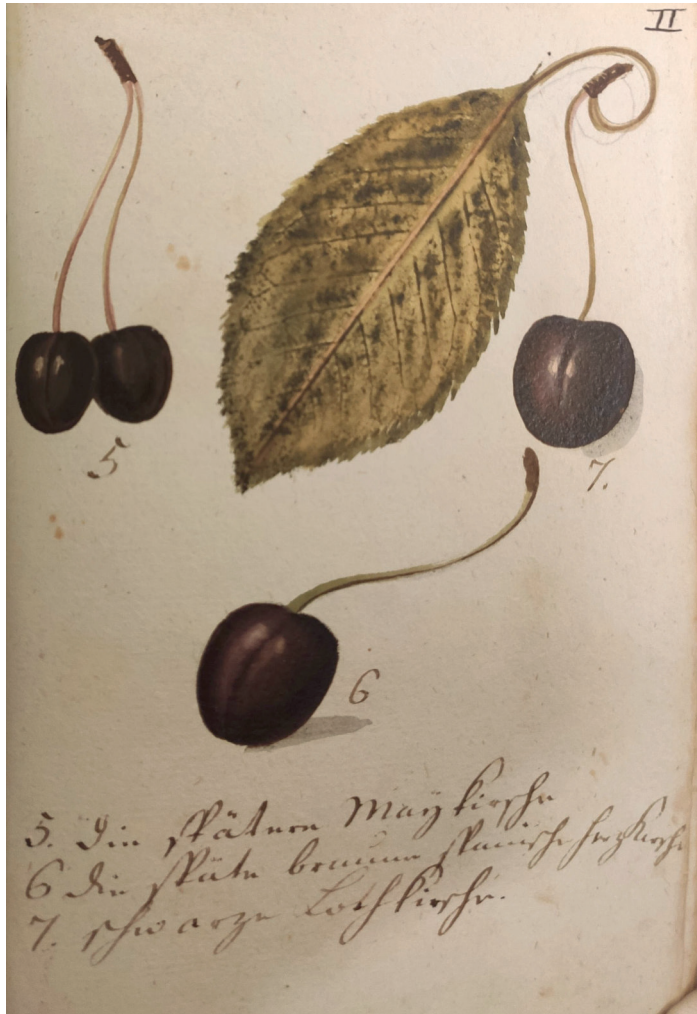 II
5
7.
6
5. die spätere Maykirsche
6 die späte braune spanische Herzkirsche
7. schwarze Lothkirsche.